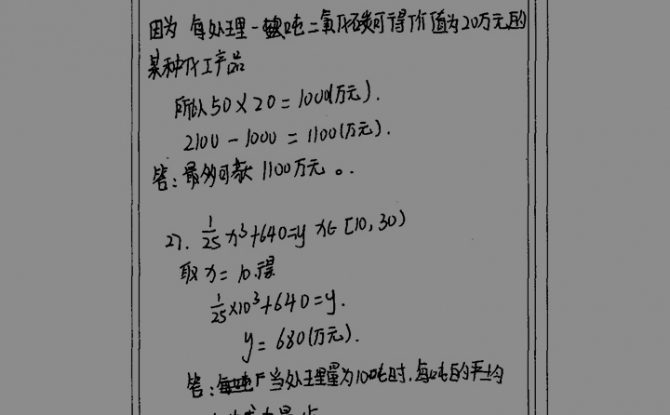 因为每处理一吨二氧化碳可得价值为20万元的
某种化工产品
所以50×20=1000(万元).
2100-1000=1100(万元).
答:最多可获1100万元。.
2). 1/25 x³+640=y x∈[10,30)
取x=10.得
1/25×10³+640=y.
y=680(万元).
答:当处理量为100吨时.每吨的平均